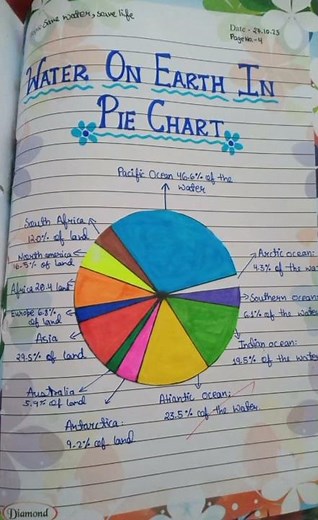 Save water, save life
Date - 28.10.23
Page No - 4
WATER ON EARTH IN
PIE CHART
Pacific Ocean 46.6% of the
water
South Africa
12.0% of land
North america
16.5% of land
Africa 20.4 land
Europe 6.8%
of land
Asia
29.5% of land
Australia
5.9% of land
Antarctica:
9.2% of land
Atlantic ocean:
23.5% of the water
Indian ocean:
19.5% of the water
Southern ocean:
6.1% of the water
Arctic ocean:
4.3% of the wa
Diamond